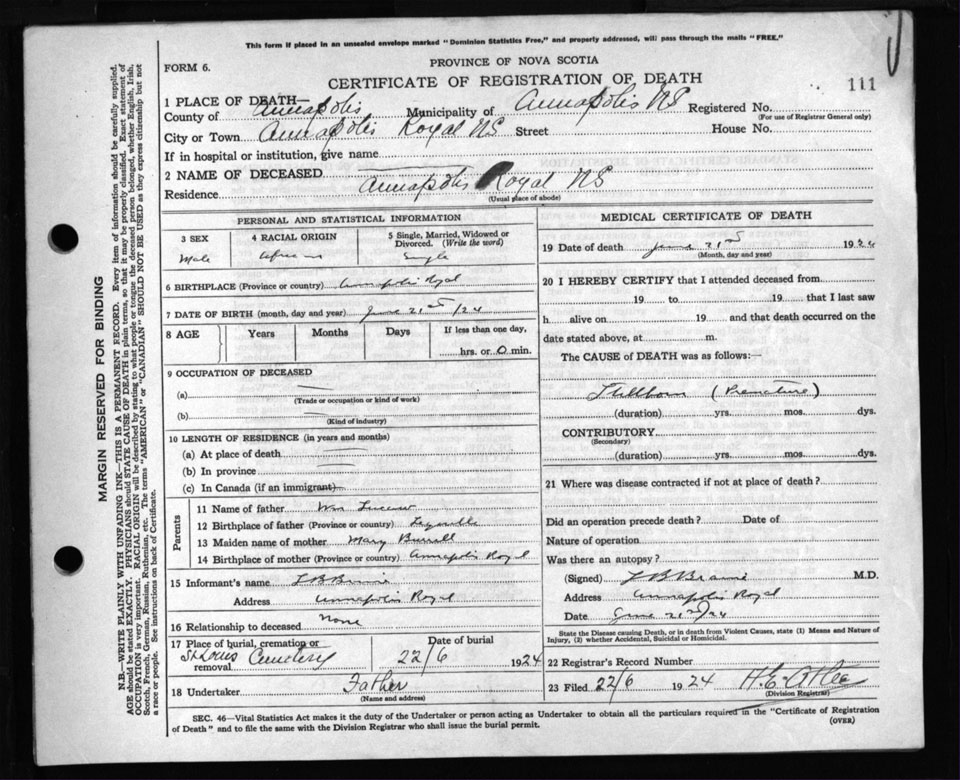 This form if placed in an unsealed envelope marked "Dominion Statistics Free," and properly addressed, will pass through the mails "FREE."
FORM 6.
PROVINCE OF NOVA SCOTIA
CERTIFICATE OF REGISTRATION OF DEATH
111
1 PLACE OF DEATH—
County of Annapolis Municipality of Annapolis NS Registered No.
(For use of Registrar General only)
City or Town Annapolis Royal NS Street House No.
If in hospital or institution, give name
2 NAME OF DECEASED
Residence Annapolis Royal NS
(Usual place of abode)
PERSONAL AND STATISTICAL INFORMATION
3 SEX 4 RACIAL ORIGIN 5 Single, Married, Widowed or Divorced. (Write the word)
Male Single
6 BIRTHPLACE (Province or country) Annapolis Royal
7 DATE OF BIRTH (month, day and year) June 21st /24
8 AGE Years Months Days If less than one day,
hrs. or 0 min.
9 OCCUPATION OF DECEASED
(a)
(Trade or occupation or kind of work)
(b)
(Kind of industry)
10 LENGTH OF RESIDENCE (in years and months)
(a) At place of death
(b) In province
(c) In Canada (if an immigrant)
Parents
11 Name of father Wm
12 Birthplace of father (Province or country) Lequille
13 Maiden name of mother Mary Burrell
14 Birthplace of mother (Province or country) Annapolis Royal
15 Informant's name L B Braine
Address Annapolis Royal
16 Relationship to deceased None
17 Place of burial, cremation or removal St Louis Cemetery Date of burial 22/6 1924
18 Undertaker Father
(Name and address)
MEDICAL CERTIFICATE OF DEATH
19 Date of death June 21st 1924
(Month, day and year)
20 I HEREBY CERTIFY that I attended deceased from
19 to 19 that I last saw
h alive on 19 and that death occurred on
date stated above, at m.
The CAUSE of DEATH was as follows:—
Stillborn (Premature)
(duration) yrs. mos. dys.
CONTRIBUTORY
(Secondary)
(duration) yrs. mos. dys.
21 Where was disease contracted if not at place of death?
Did an operation precede death? Date of
Nature of operation
Was there an autopsy?
(Signed) L B Braine M.D.
Address Annapolis Royal
Date June 21st/24
State the Disease causing Death, or in death from Violent Causes, state (1) Means and Nature of
Injury, (2) whether Accidental, Suicidal or Homicidal.
22 Registrar's Record Number
23 Filed 22/6 1924 H.E. Atlee
(Division Registrar)
SEC. 46—Vital Statistics Act makes it the duty of the Undertaker or person acting as Undertaker to obtain all the particulars required in the "Certificate of Registration
of Death" and to file the same with the Division Registrar who shall issue the burial permit. (OVER)
MARGIN RESERVED FOR BINDING
N.B.—WRITE PLAINLY WITH UNFADING INK—THIS IS A PERMANENT RECORD. Every item of information should be carefully supplied.
AGE should be stated EXACTLY. PHYSICIANS should STATE CAUSE OF DEATH in plain terms, so that it may be properly classified. Exact statement of
OCCUPATION is very important. RACIAL ORIGIN will be described by stating to what people or tongue the deceased person belonged, whether English, Irish,
Scotch, French, German, Russian, Ruthenian, etc. The terms "AMERICAN" or "CANADIAN" SHOULD NOT BE USED as they express citizenship but not
a race or people. See instructions on back of Certificate.